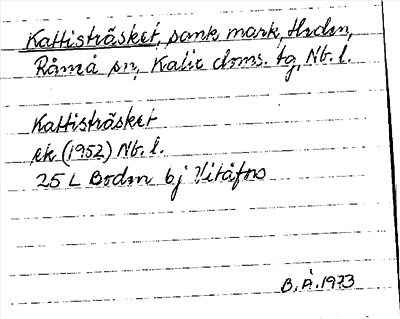 Kattisträsket, sank mark, Hedn,
Råneå sn, Kalix doms. tg, Nb. l.
Kattisträsket
ek (1952) Nb. l.
25 L Boden 6j Vitåfors
B. Å. 1973